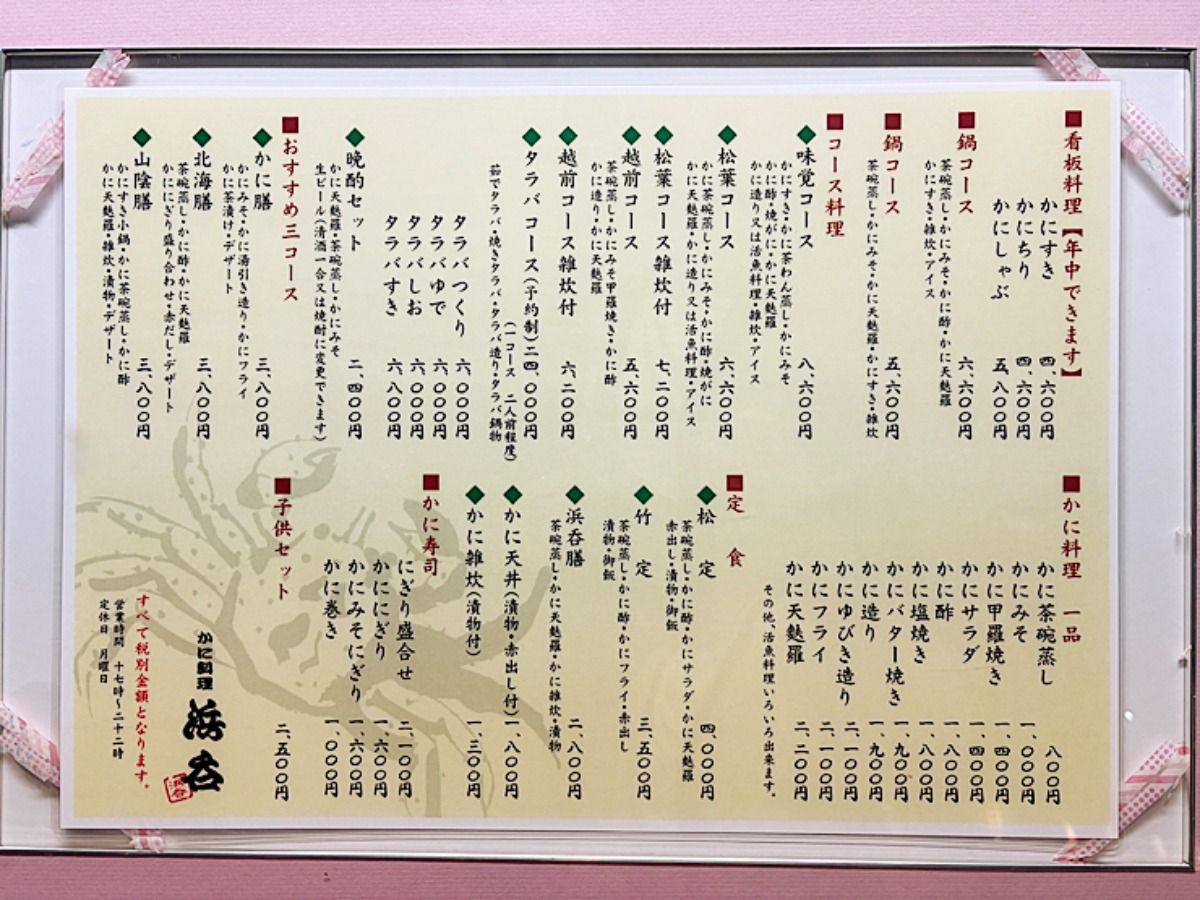 ■看板料理【年中できます】
かにすき 四、六〇〇円
かにちり 四、六〇〇円
かにしゃぶ 五、八〇〇円
■鍋コース 六、六〇〇円
茶碗蒸し・かにみそ・かに酢・かに天麩羅
かにすき・雑炊・アイス
■鍋コース 五、六〇〇円
茶碗蒸し・かにみそ・かに天麩羅・かにすき・雑炊
■コース料理
◆味覚コース 八、六〇〇円
かにすき・かに茶わん蒸し・かにみそ
かに酢・焼がに・かに天麩羅
かに造り又は活魚料理・雑炊・アイス
◆松葉コース 六、六〇〇円
かに茶碗蒸し・かにみそ・かに酢・焼がに
かに天麩羅・かに造り又は活魚料理・アイス
◆松葉コース雑炊付 七、二〇〇円
◆越前コース 五、六〇〇円
茶碗蒸し・かにみそ甲羅焼き・かに酢
かに造り・かに天麩羅
◆越前コース雑炊付 六、二〇〇円
◆タラバコース(予約制) 二四、〇〇〇円
(一コース 二人前程度)
茹でタラバ・焼きタラバ・タラバ造り・タラバ鍋物
タラバつくり 六、〇〇〇円
タラバゆで 六、〇〇〇円
タラバしお 六、〇〇〇円
タラバすき 六、八〇〇円
◆晩酌セット 二、四〇〇円
かに天麩羅・茶碗蒸し・かにみそ
生ビール(清酒一合又は焼酎に変更できます)
■おすすめ三コース
◆かに膳 三、八〇〇円
かにみそ・かに湯引き造り・かにフライ
かに茶漬け・デザート
◆北海膳 三、八〇〇円
茶碗蒸し・かに酢・かに天麩羅
かににぎり盛り合わせ・赤だし・デザート
◆山陰膳 三、八〇〇円
かにすき小鍋・かに茶碗蒸し・かに酢
かに天麩羅・雑炊・漬物・デザート
■かに料理 一品
かに茶碗蒸し 八〇〇円
かにみそ 一、〇〇〇円
かに甲羅焼き 一、四〇〇円
かにサラダ 一、四〇〇円
かに酢 一、八〇〇円
かに塩焼き 一、八〇〇円
かにバター焼き 一、九〇〇円
かに造り 一、九〇〇円
かにゆびき造り 二、一〇〇円
かにフライ 二、一〇〇円
かに天麩羅 二、二〇〇円
その他、活魚料理いろいろ出来ます。
■定食
◆松定 四、〇〇〇円
茶碗蒸し・かに酢・かにサラダ・かに天麩羅
赤出し・漬物・御飯
◆竹定 三、五〇〇円
茶碗蒸し・かに酢・かにフライ・赤出し
漬物・御飯
◆浜呑膳 二、八〇〇円
茶碗蒸し・かに天麩羅・かに雑炊・漬物
◆かに天丼(漬物・赤出し付) 一、八〇〇円
◆かに雑炊(漬物付) 一、三〇〇円
■かに寿司
にぎり盛合せ 二、一〇〇円
かににぎり 一、六〇〇円
かにみそにぎり 一、六〇〇円
かに巻き 一、〇〇〇円
■子供セット 二、五〇〇円
かに料理 浜呑
浜呑
すべて税別金額となります。
営業時間 十七時~二十二時
定休日 月曜日